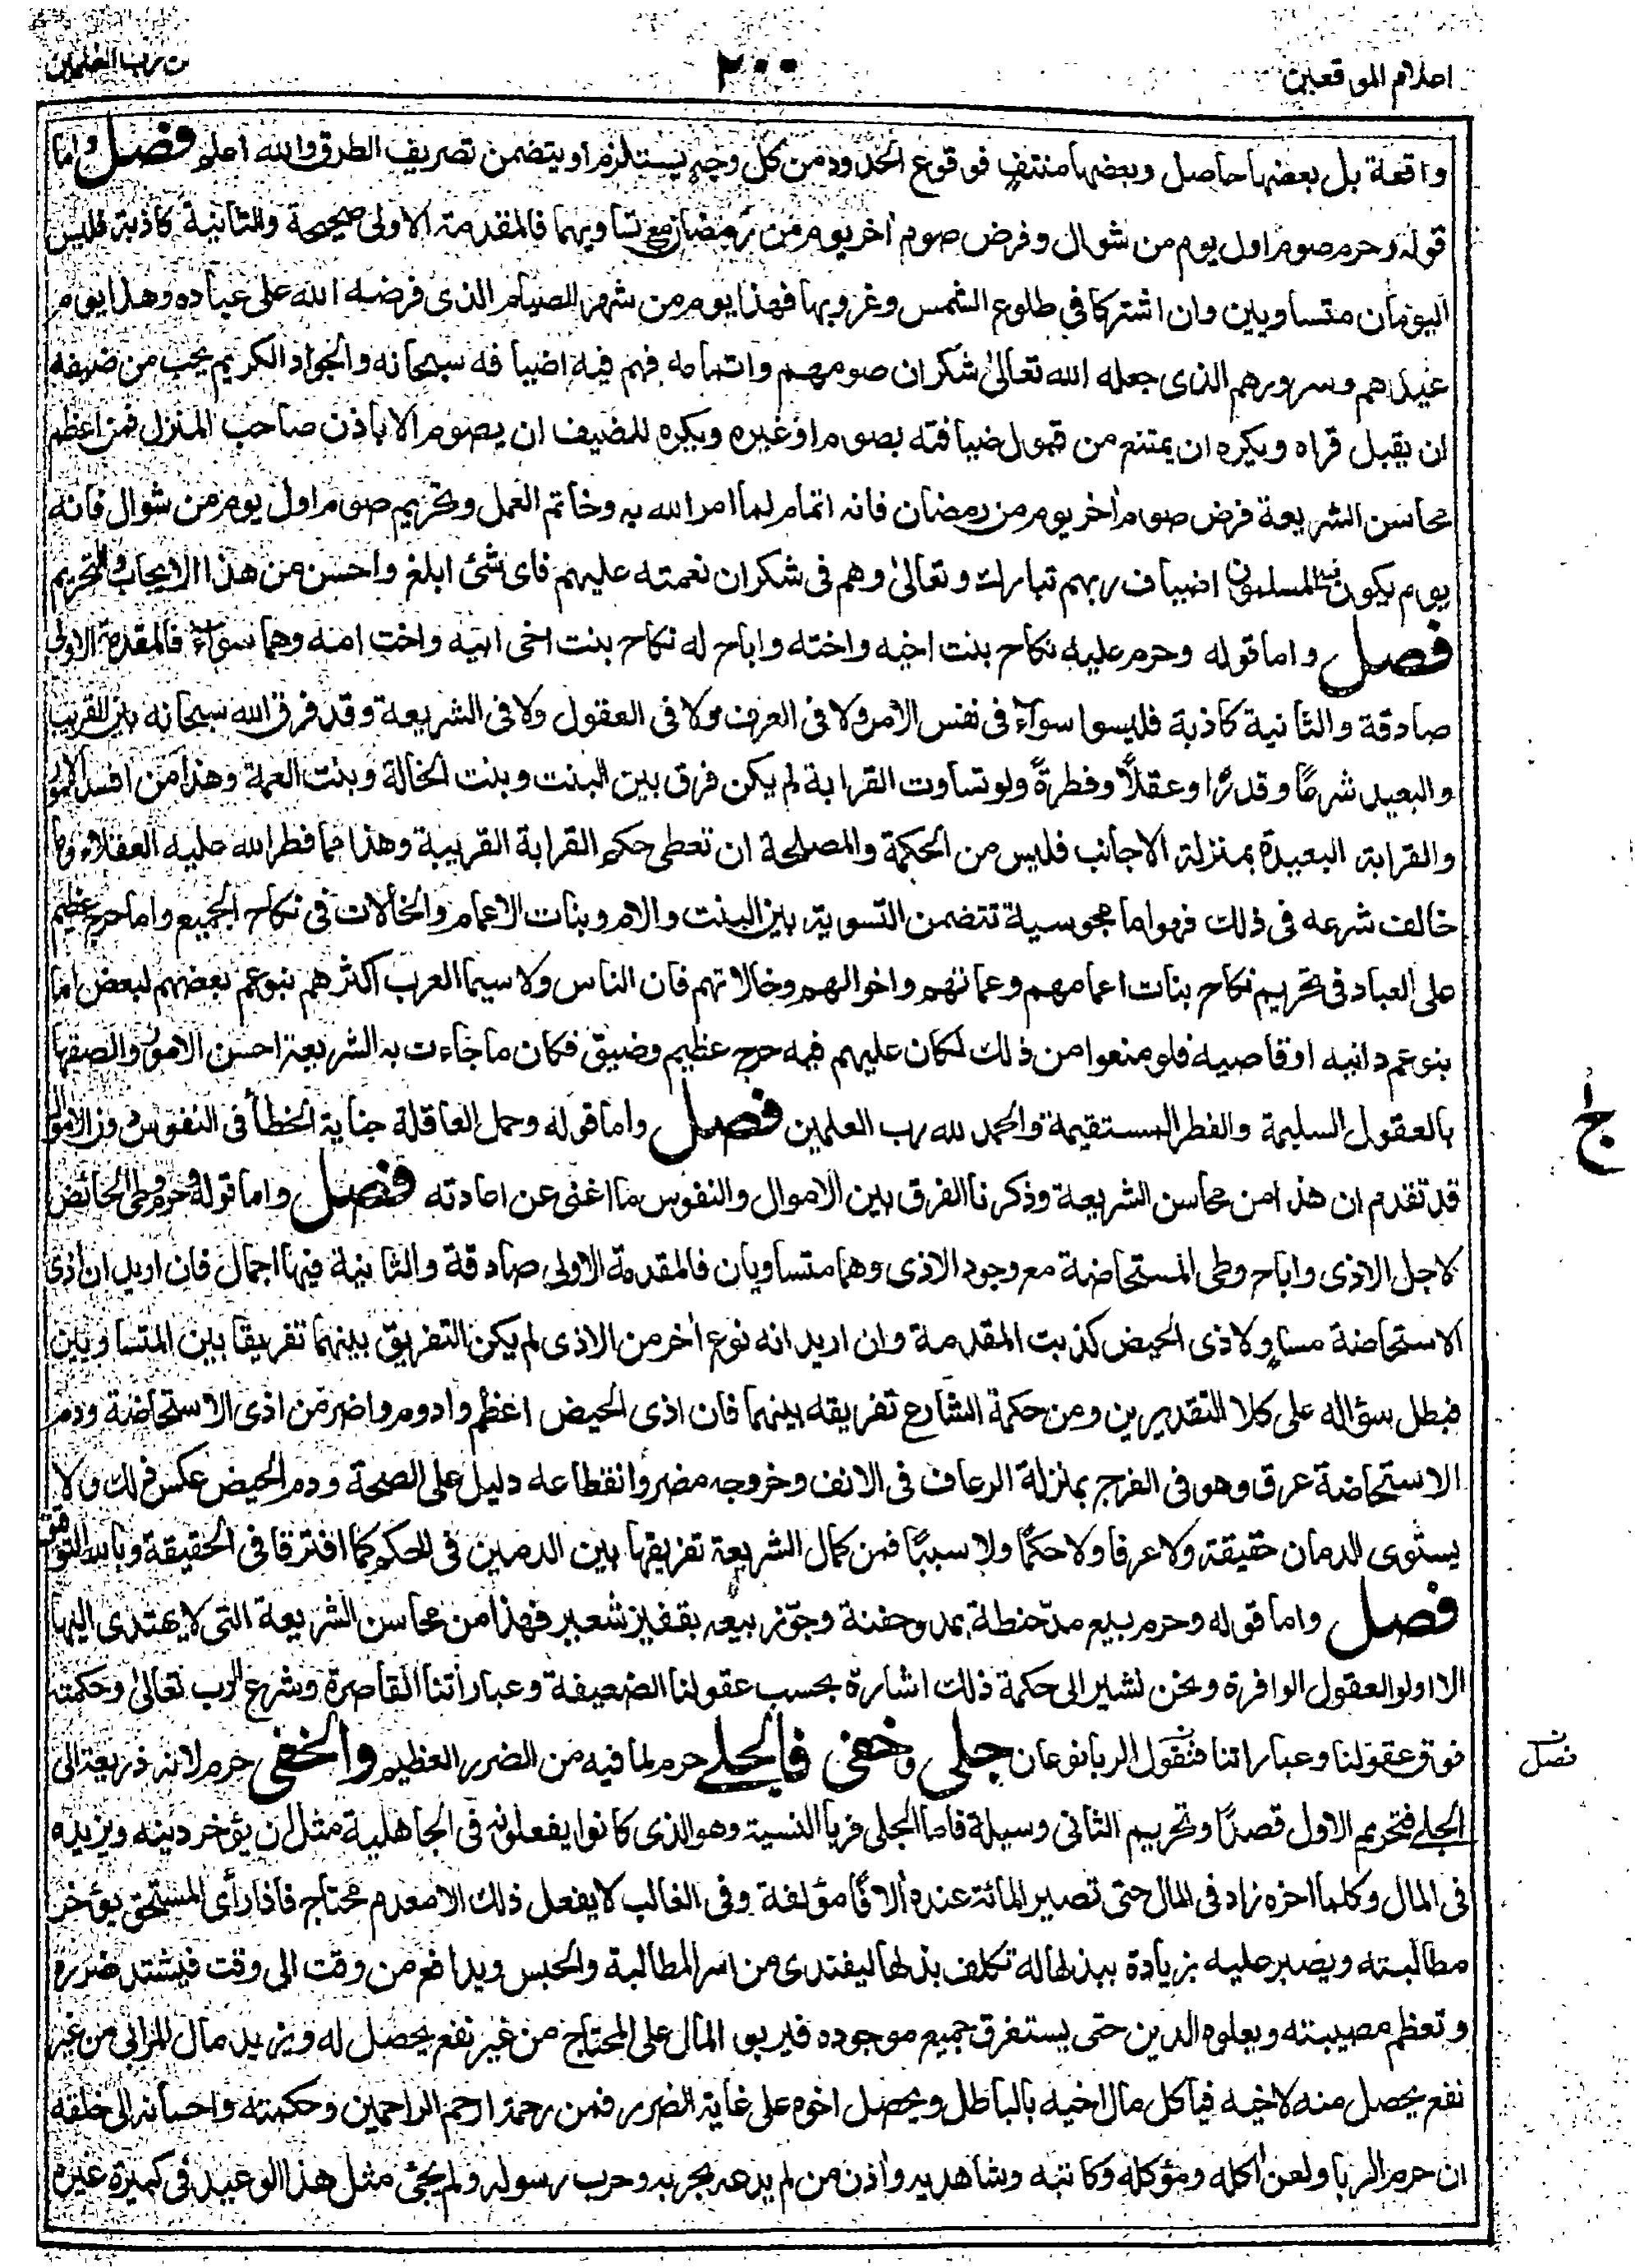 اعلام الموقعين
٢٠٠
عن رب العلمين
واقعة بل بعضها حاصل وبعضها منتفٍ فوقوع الحدود من كل وجهٍ يستلزم او يتضمن تصريف الطرق والله اعلم فصل واما
قوله وحرم صوم اول يوم من شوال وفرض صوم اٰخر يوم من رمضان مع تساويهما فالمقدمة الاولى صحيحة والثانية كاذبة فليس
اليومان متساويين وان اشتركا في طلوع الشمس وغروبها فهذا يوم من شهر الصيام الذى فرضه الله على عباده وهذا يوم
عيدهم وسرورهم الذى جعله الله تعالىٰ شكران صومهم واتمامه فهم فيه اضيافه سبحانه والجواد الكريم يحب من ضيفه
ان يقبل قراه ويكره ان يمتنع من قبول ضيافته بصوم او غيره ويكره للمضيف ان يصوم الا باذن صاحب المنزل فمن اعظم
محاسن الشريعة فرض صوم اٰخر يوم من رمضان فانه اتمام لما امر الله به وخاتم العمل وتحريم صوم اول يوم من شوال فانه
يوم يكون فيه المسلمون اضياف ربهم تبارك وتعالىٰ وهم فى شكران نعمته عليهم فاى شئ ابلغ واحسن من هذا الايجاب والتحريم
فصل واما قوله وحرم عليه نكاح بنت اخيه واخته واباح له نكاح بنت اخى ابيه واخت امه وهما سواء فالمقدمة الاولى
صادقة والثانية كاذبة فليسوا سواء فى نفس الامر ولا فى العرف ولا فى العقول ولا فى الشريعة وقد فرق الله سبحانه بين القريب
والبعيد شرعًا وقدرًا وعقلًا وفطرةً ولو تساوت القرابة لم يكن فرق بين البنت وبنت الخالة وبنت العمة وهذا من افسد الامور
والقرابة البعيدة بمنزلة الاجانب فليس من الحكمة والمصلحة ان تعطى حكم القرابة القريبة وهذا مما فطر الله عليه العقلاء وما
خالف شرعه فى ذلك فهو اما مجوسية تتضمن التسوية بين البنت والام وبنات الاعمام والخالات فى نكاح الجميع واما حرج عظيم
على العباد فى تحريم نكاح بنات اعمامهم وعماتهم واخوالهم وخالاتهم فان الناس ولا سيما العرب اكثرهم بنو عم بعضهم لبعض اما
بنو عم دانيه او قاصيه فلو منعوا من ذلك لكان عليهم فيه حرج عظيم وضيق فكان ما جاءت به الشريعة احسن الامور والصقها
بالعقول السليمة والفطر المستقيمة والحمد لله رب العلمين فصل واما قوله وحمل العاقلة جناية الخطأ فى النفوس دون الاموال
قد تقدم ان هذا من محاسن الشريعة وذكرنا الفرق بين الاموال والنفوس ما اغنى عن اعادته فصل واما قوله وحرم وطى الحائض
لاجل الاذى واباح وطى المستحاضة مع وجود الاذى وهما متساويان فالمقدمة الاولى صادقة والثانية فيها اجمال فان اريد ان اذى
الاستحاضة مساوٍ لاذى الحيض كذبت المقدمة وان اريد انه نوع اٰخر من الاذى لم يكن التفريق بينهما تفريقا بين المتساويين
فبطل سؤاله على كلا التقديرين ومن حكمة الشارع تفريقه بينهما فان اذى الحيض اعظم وادوم واضر من اذى الاستحاضة ودم
الاستحاضة عرق وهو فى الفرج بمنزلة الرعاف فى الانف وخروجه مضر وانقطاعه دليل على الصحة ودم الحيض عكس ذلك ولا
يستوى الدمان حقيقة ولا عرفا ولا حكمًا ولا سببًا فمن كمال الشريعة تفريقها بين الدمين فى الحكم كما افترقا فى الحقيقة وبالله التوفيق
فصل واما قوله وحرم بيع مد حنطة بمد وحفنة وجوّز بيعه بقفيز شعير فهذا من محاسن الشريعة التى لا يهتدى اليها
الا اولو العقول الوافرة ونحن نشير الى حكمة ذلك اشارة بحسب عقولنا الضعيفة وعباراتنا القاصرة وشرع الرب تعالىٰ وحكمته
فوق عقولنا وعباراتنا فنقول الربا نوعان جلى وخفى فالجلے حرم لما فيه من الضرر العظيم والخفى حرم لانه ذريعة الى
الجلے فتحريم الاول قصدًا وتحريم الثانى وسيلة فاما الجلى فربا النسية وهو الذى كانوا يفعلونه فى الجاهلية مثل ان يؤخر دينه ويزيده
فى المال وكلما اخره زاد فى المال حتى تصير المائة عنده اٰلافًا مؤلفة وفى الغالب لا يفعل ذلك الا معدم محتاج فاذا رأى المستحق يؤخر
مطالبته ويصبر عليه بزيادة يبذلها له تكلف بذلها ليفتدى من اسر المطالبة والحبس ويدافع من وقت الى وقت فيشتد ضرره
وتعظم مصيبته ويعلوه الدين حتى يستغرق جميع موجوده فيربو المال على المحتاج من غير نفع يحصل له ويزيد مال المرابى من غير
نفع يحصل منه لاخيه فيأكل مال اخيه بالباطل ويحصل اخوه على غاية الضرر فمن رحمة ارحم الراحمين وحكمته واحسانه الى خلقه
ان حرم الربا ولعن اٰكله ومؤكله وكاتبه وشاهديه واٰذن من لم يدعه بحربه وحرب رسوله ولم يجئ مثل هذا الوعيد فى كبيرة غيره